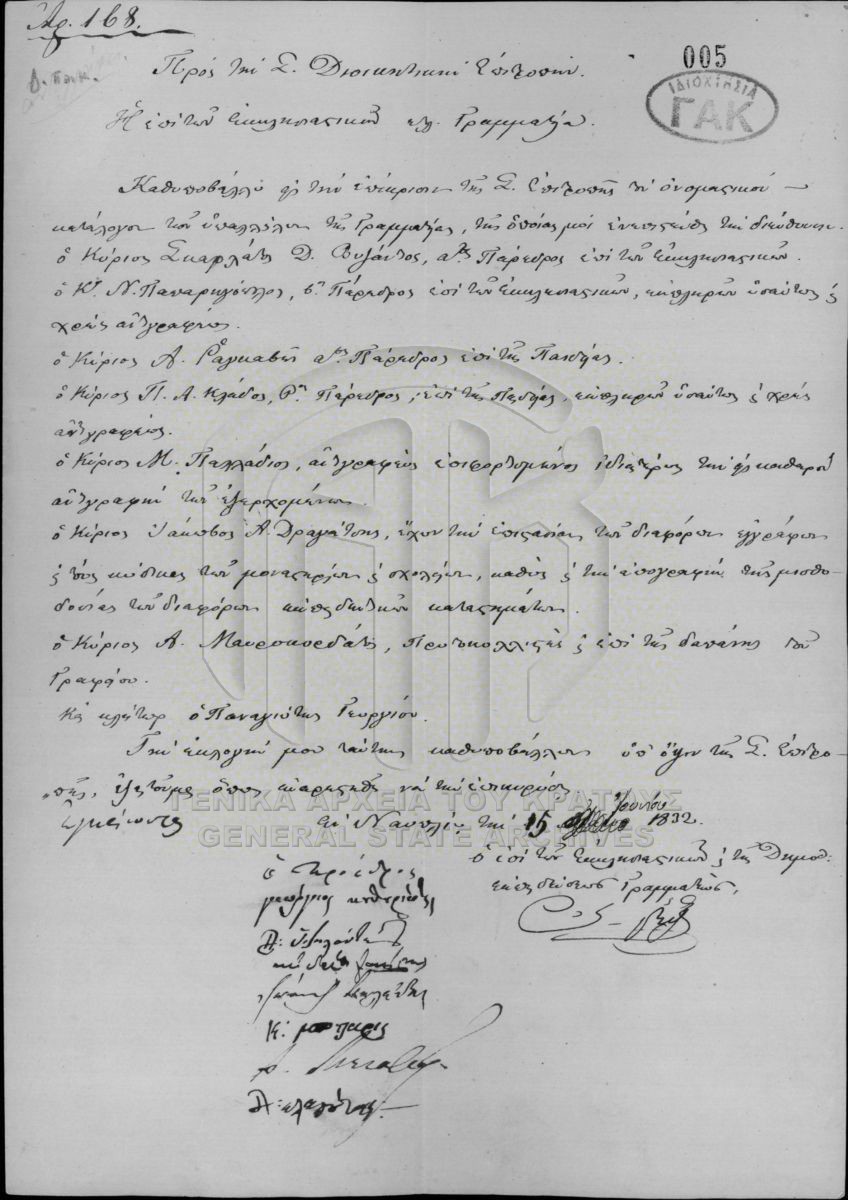 Ἀρ. 168.
005
ΙΔΙΟΚΤΗΣΙΑ
ΓΑΚ
Πρὸς τὴν Σ. Διοικητικὴν Ἐπιτροπήν.
Ἡ ἐπὶ τῶν Ἐκκλησιαστικῶν κτλ. Γραμματεία.
Καθυποβάλλω εἰς τὴν ἐπίκρισιν τῆς Σ. Ἐπιτροπῆς τὸν ὀνομαστικὸν
κατάλογον τῶν ὑπαλλήλων τῆς Γραμματείας, τῆς ὁποίας μοὶ ἐνεπιστεύθη τὴν διεύθυνσιν.
ὁ Κύριος Σκαρλάτος Δ. Βυζάντιος, αος Πάρεδρος ἐπὶ τῶν Ἐκκλησιαστικῶν.
ὁ Κος Ν. Παπαρηγόπουλος, βος Πάρεδρος ἐπὶ τῶν Ἐκκλησιαστικῶν, ἐκπληρῶν ὡσαύτως καὶ
χρέη ἀντιγραφέως.
ὁ Κύριος Α. Ῥαγκαβῆς αος Πάρεδρος ἐπὶ τῆς Παιδείας.
ὁ Κύριος Π. Α. Κλάδος, βος Πάρεδρος, ἐπὶ τῆς Παιδείας, ἐκπληρῶν ὡσαύτως καὶ χρέη
ἀντιγραφέως.
ὁ Κύριος Μ. Παλλάδιος, ἀντιγραφεὺς ἐπιφορτισμένος ἰδιαιτέρως τὴν εἰς καθαρὸν
ἀντιγραφὴν τῶν ἐξερχομένων.
ὁ Κύριος Ἰάκωβος Α. Δραγάτσης, ἔχων τὴν ἐπιστασίαν τῶν διαφόρων ἐγγράφων
καὶ τοὺς κώδικας τῶν μοναστηρίων καὶ σχολείων, καθὼς καὶ τὴν ἀπογραφὴν τῆς μισθο-
δοσίας τῶν διαφόρων ἐκπαιδευτικῶν καταστημάτων.
ὁ Κύριος Α. Μαυροκορδάτος, Πρωτοκολλιστὴς καὶ ἐπὶ τῆς δαπάνης τοῦ
Γραφείου.
Καὶ κλήτωρ ὁ Παναγιώτης Γεωργίου.
Τὴν ἐκλογήν μου ταύτην καθυποβάλλων ὑπ' ὄψιν τῆς Σ. Ἐπιτρο-
πῆς, ἐξαιτοῦμαι ὅπως εὐαρεστηθῇ νὰ τὴν ἐπικυρώσῃ.
Ἐγκρίνονται
Ἐν Ναυπλίῳ τὴν 15 Ἰουνίου 1832.
ὁ ἐπὶ τῶν Ἐκκλησιαστικῶν καὶ τῆς Δημοσ:
ἐκπαιδεύσεως Γραμματεύς,
Ὁ Πρόεδρος
Κ. μπότζαρις
ΓΕΝΙΚΑ ΑΡΧΕΙΑ ΤΟΥ ΚΡΑΤΟΥΣ
GENERAL STATE ARCHIVES